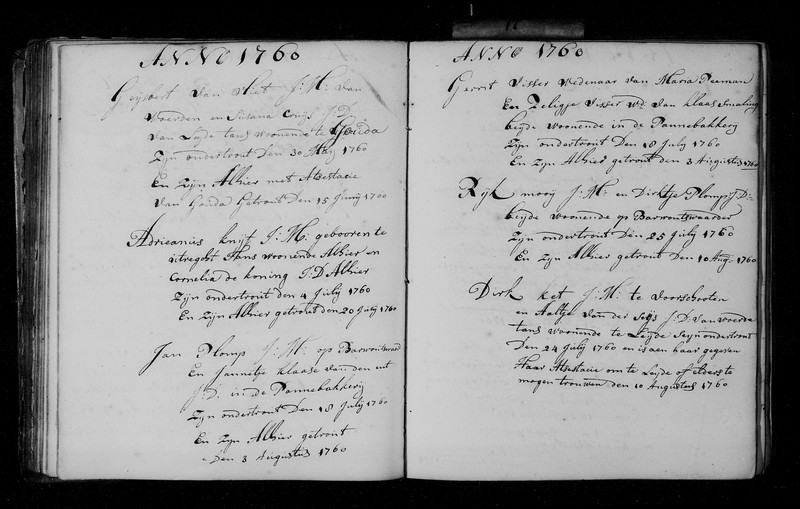 ANNO 1760
Geijsbert van Vliet J: M: van
Woerden en Susana Cruijs J.D.
van Leijde tans woonende te Gouda
Zijn ondertrout Den 30 Maij 1760
En Zijn Alhier met Atestacie
van Gouda Getrout den 15 Junij 1760
Adrieanus knijf J: M: gebooren te
uitreght Tans woonende Alhier en
Cornelia de koning J: D Alhier
Zijn ondertrout den 4 Julij 1760
En Zijn Alhier getrout den 20 Julij 1760
Jan Plomp J: M: op Barwoutswaard
En Jannetje klaase van den
J.D. in de Pannebakkerij
Zijn ondertrout Den 18 Julij 1760
En Zijn Alhier getrout
Den 3 Augustus 1760
ANNO 1760
Gerrit Visser Wedenaar van Maria Peeman
En Zeligje Visser Wd: van klaas Smaling
beijde woonende in de Pannebakkerij
Zijn ondertrout Den 18 Julij 1760
En Zijn Alhier getrout den 3 Augustus 1760
Rijk mooij J: M: en Dirktje Plomp J: D:
beijde woonende op Barwoutswaarder
Zijn ondertrout Den 25 Julij 1760
En Zijn Alhier getrout den 10 Aug: 1760
Dirk ket J: M: te Voorschooten
en Aaltje van der Seijs J: D: van woerde
tans woonende te Leijde Seijn ondertrout
Den 24 Julij 1760 en is aen haar gegeven
Haar Atestacie om te Leijde of Elders te
mogen trouwen den 10 Augustus 1760